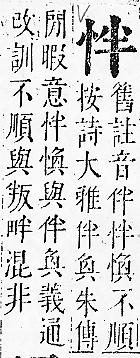 怑
舊註音伴伴愌不順
按詩大雅伴奐朱傳
閒暇意怑愌與伴奐義通
改訓不順與叛畔混非